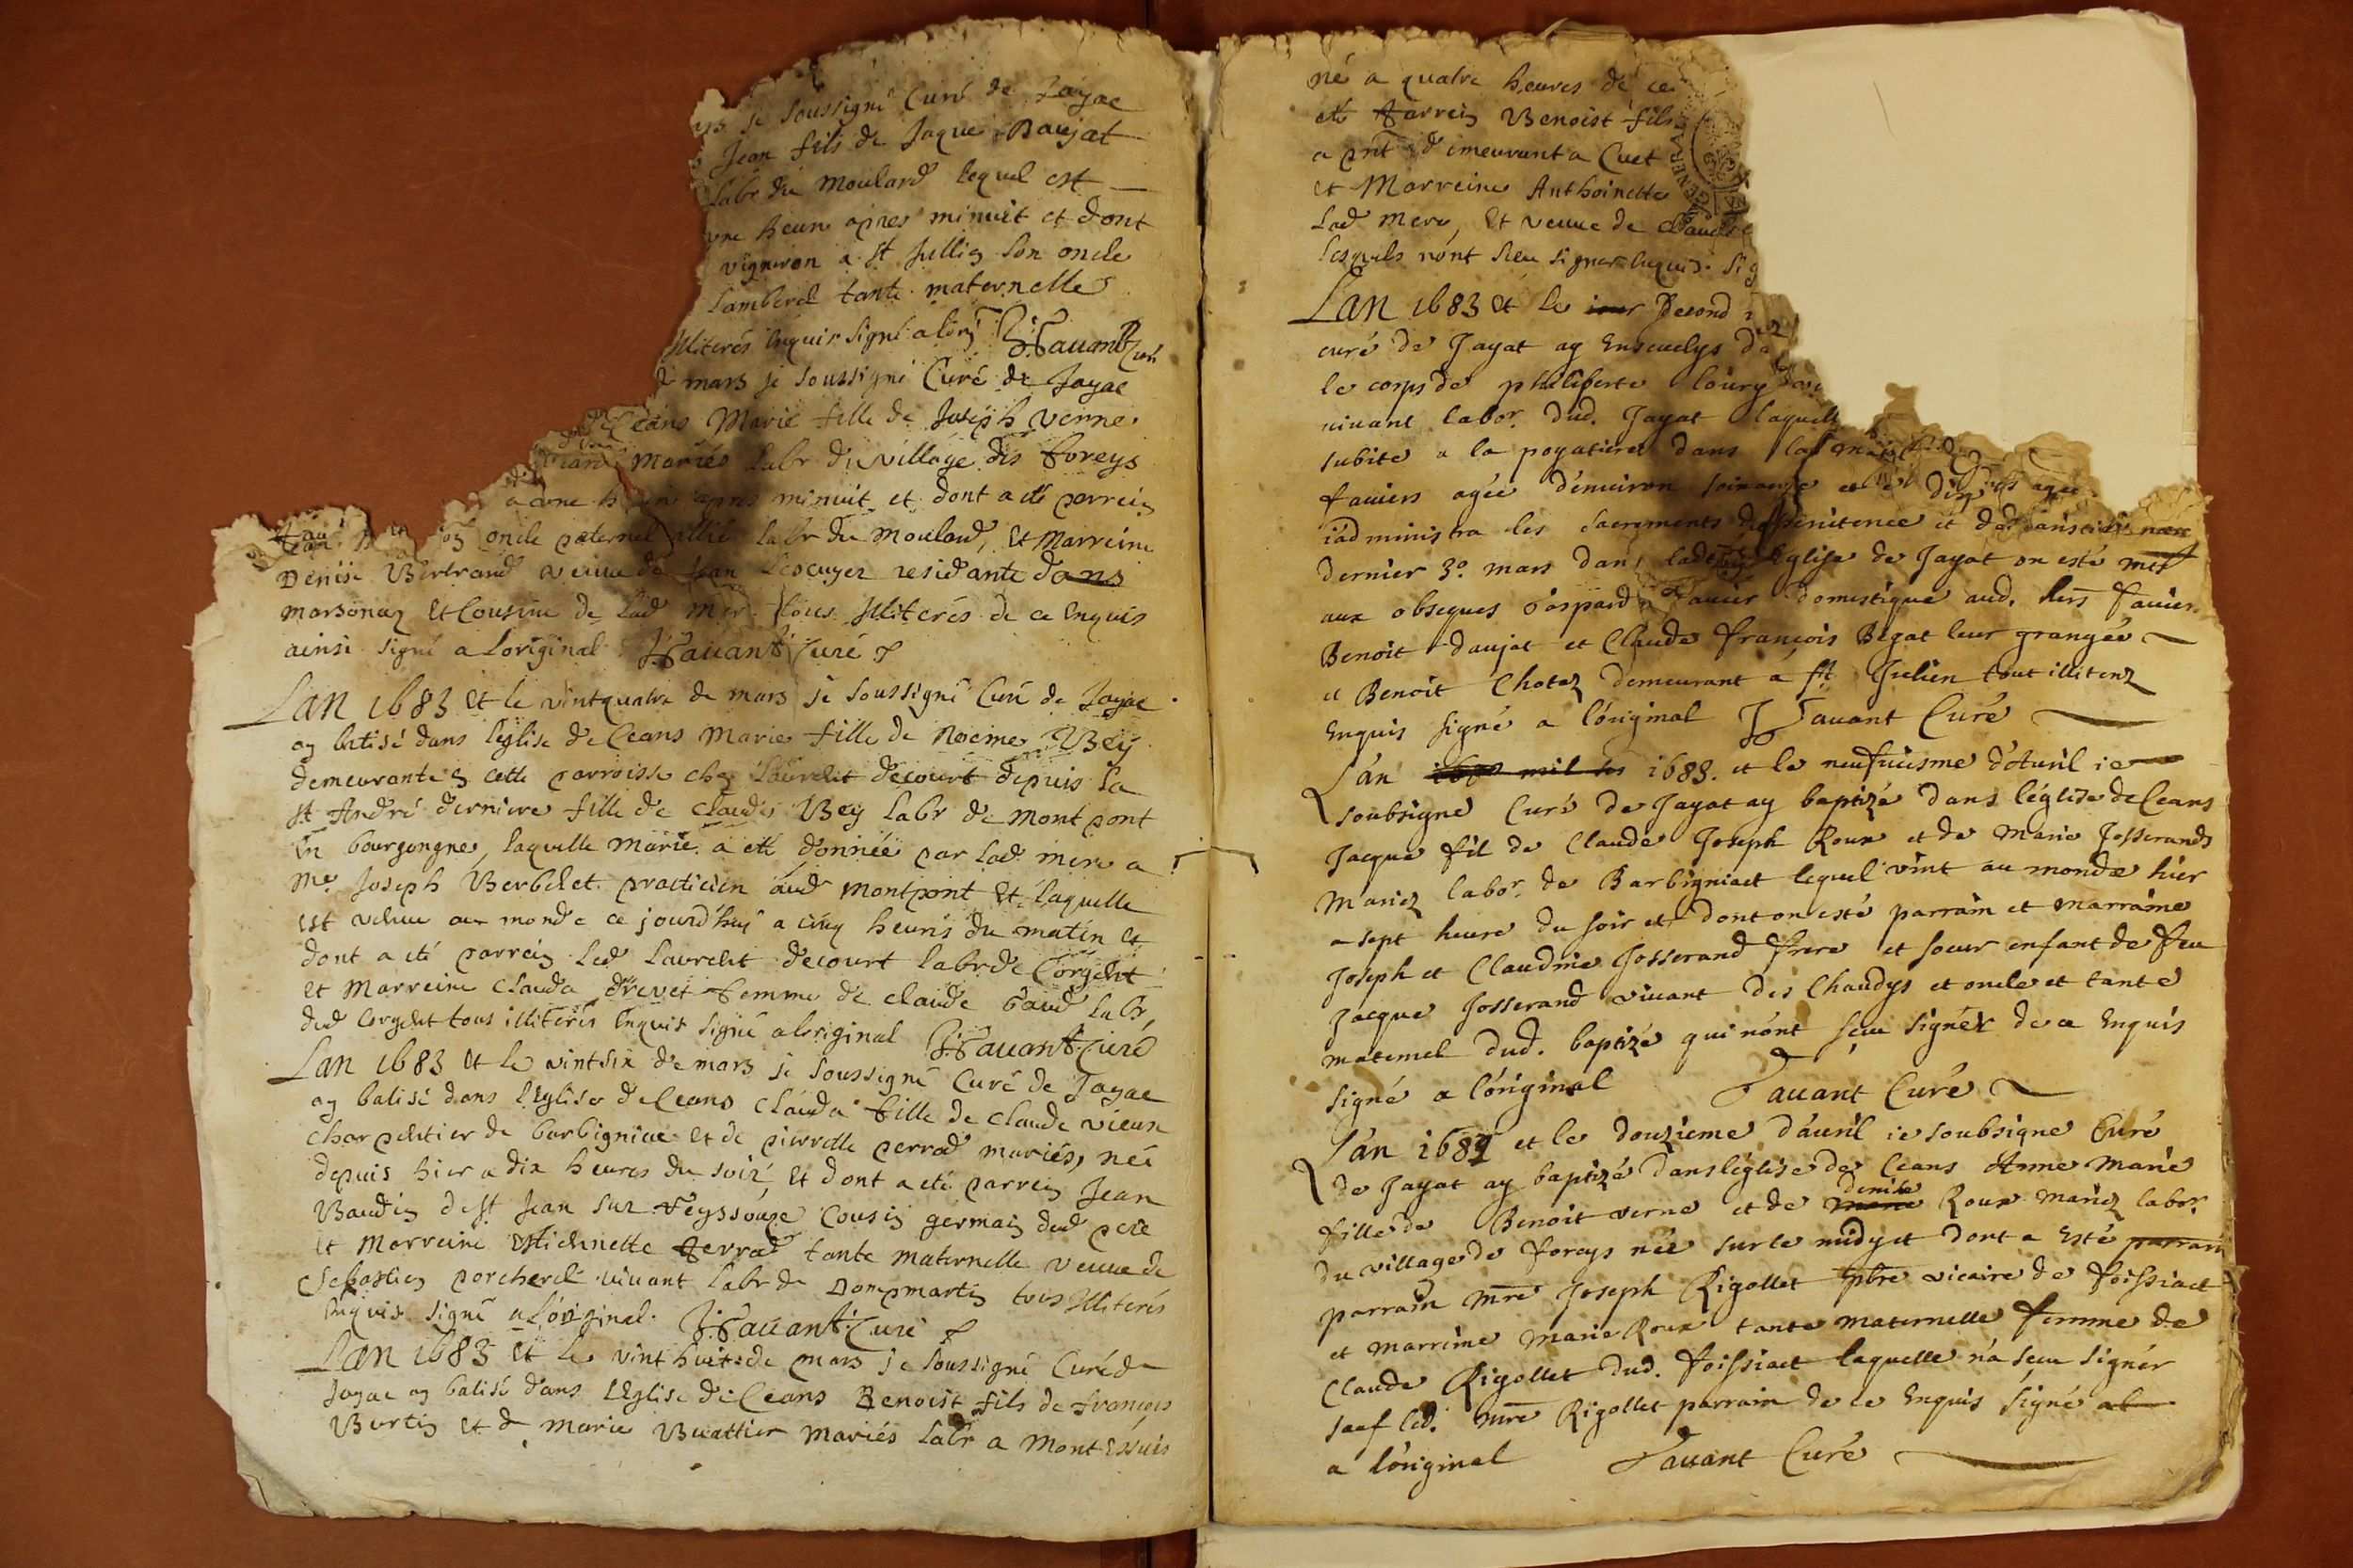 je soussigné Curé de Jayac
Jean fils de Jaque Baujat
labr du Moulard lequel est
une heure apres minuit et dont
vigneron a St Jullin son oncle
Lamberel tante maternelle
Illiterés enquis signé a lorig Favant Curé
de mars je soussigné Curé de Jayac
Ceans Marie fille de Joseph Verne
mariés labr du village des foreys
a une heure apres minuit et dont a été parrein
oncle paternel labr du moulard, et Marreine
Denise Bertrand veuve de Jean Lescuyer residante dans
marsonaz et Cousine de lad mere tous Illiterés de ce enquis
ainsi signé a loriginal Favant Curé
Lan 1683 et le vintquatre de mars je soussigné Curé de Jayac
ay batisé dans leglise de Ceans Marie fille de Noeme Bey
demeurante en cette parroisse chez Laurelet decourt depuis la
St André derniere fille de Claude Bey labr de montpont
en bourgongne, laquelle marie a été donnée par lad mere a
Me Joseph Berbelet practicien aud montpont et laquelle
est venue au monde ce jourdhuy a cinq heures du matin et
dont a été parrein led Laurelet decourt labr de Corgelet
et Marreine Clauda drevet femme de claude baud labr
dud Corgelet tous illiterés enquis signé aloriginal Favant Curé
Lan 1683 et le vintsix de mars je soussigné Curé de Jayac
ay batisé dans lEglise de Ceans Clauda fille de Claude vieux
charpentier de barbigniac et de pierrette perrod mariés, née
depuis hier a dix heures du soir, et dont a été parrein Jean
Baudin de St Jean sur Veyssouze Cousin germain dud pere
et Marreine Estiennette perrod tante maternelle veuve de
Sebastien porcherel vivant labr de Dompmartin tous Illiterés
enquis signé a loriginal. Favant Curé
Lan 1683 et le vint huit de mars je soussigné Curé de
Jayac ay batisé dans lEglise de Ceans Benoist fils de françois
Burtin et de marie Buattier mariés labr a Montessuis
né a quatre heures de ce
été parrein Benoist fils
a pnt demeurant a Cuet
et Marreine Anthoinette
lad mere, et veuve de Claude
lesquels nont sceu signer enquis sig
Lan 1683 et le iour second
curé de Jayat ay ensevelys da
le corps de philiberte loury
vivant labor. dud. Jayat laquelle
subite a la pogatiere dans
faviers agée d'environ soixante et dix
i'administra les sacrements de penitence et
dernier 3e. mars dans Eglise de Jayat on esté
aux obseques Gaspard favier domestique aud. hers favier
Benoit daujat et Claude françois Begat leur grangée
et Benoit Chotez demeurant a St Julien tout illiterez
Enquis signé a l'original Favant Curé
L'an 1683. et le neufuiesme d'avril ie
soubsigne Curé de Jayat ay baptizé dans léglise de Ceans
Jacque fil de Claude Joseph Roux et de Marie Josserands
Mariez labor. de Barbigniact lequel vint au monde hier
a sept heure du soir et dont on esté parrain et marraine
Joseph et Claudine Josserand frere et soeur enfant de feu
Jacque Josserand vivant des Chaudys et oncle et tante
maternel dud. baptizé qui nónt sceu signér de ce Enquis
signé a lóriginal Favant Curé
L'an 1683 et le douzieme d'avril ie soubsigne Curé
de Jayat ay baptizé dans léglise de Ceans Anne Marie
fille de Benoit verne et de denise Roux mariez labor.
du village de foreys née sur le midy et dont a Esté parrain
parrain mre Joseph Rigollet pbre vicaire de foissiact
et marrine Marie Roux tante maternelle femme de
Claude Rigollet dud. foissiact laquelle n'a sceu signér
sauf led. mre Rigollet parrain de ce Enquis signé al
a lóriginal Favant Curé